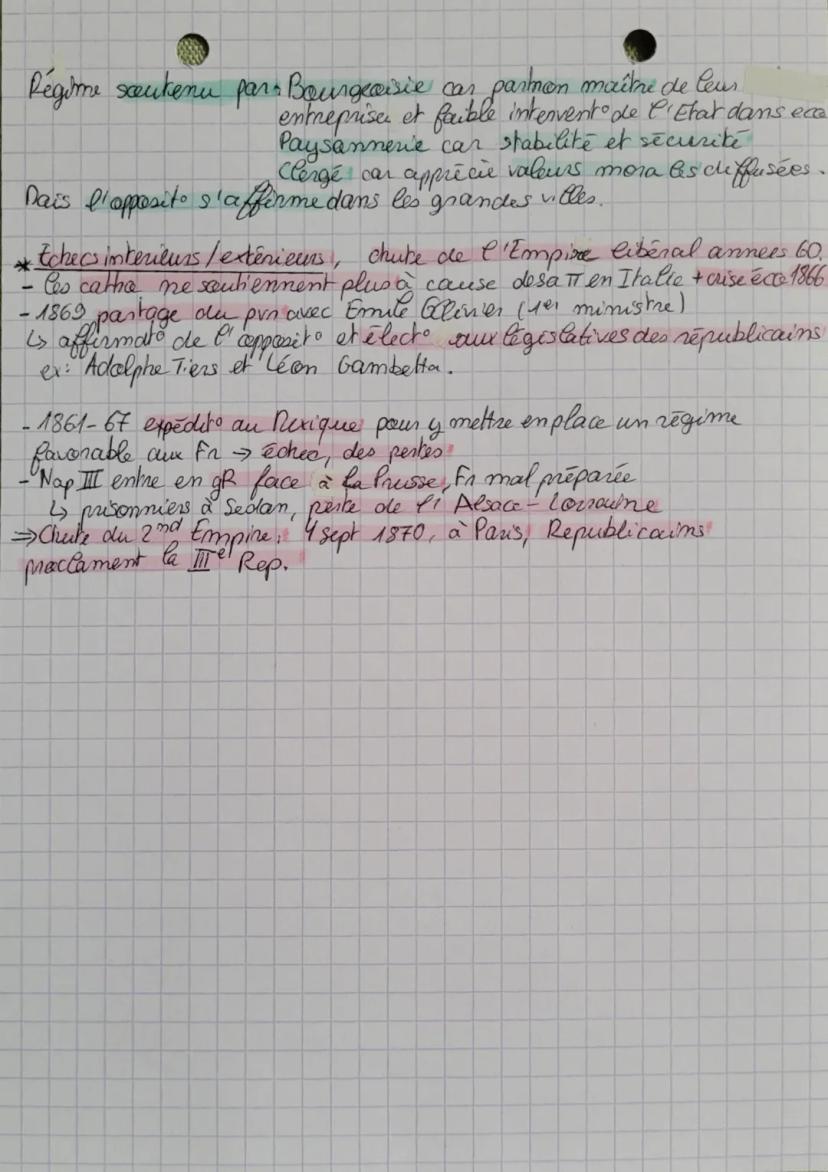 Régime soutenu par: Bourgeoisie car patron maître de leur
entreprise et faible intervent° de l'Etat dans eco
Paysannerie car stabilité et sécurité
Clergé car apprécie valeurs morales diffusées.
Mais l'opposit° s'affirme dans les grandes villes.
* Echecs interieurs/extérieurs, chute de l'Empire libéral annees 60.
- Les catho ne soutiennent plus à cause de sa π en Italie + crise éco 1866
- 1869 partage du pvr avec Emile Ollivier (1er ministre)
↳ affirmat° de l'opposit° et élect° aux législatives des républicains
ex: Adolphe Tiers et Léon Gambetta.
- 1861-67 expédit° au Mexique pour y mettre en place un régime
favorable aux Fr → échec, des pertes
- Nap III entre en gR face à la Prusse, Fr mal préparée
↳ prisonniers à Sedan, perte de l'Alsace-Lorraine
⇒ Chute du 2nd Empire: 4 sept 1870, à Paris, Republicains
proclament la IIIe Rep.